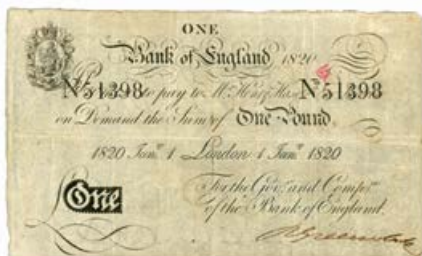 ONE
Bank of England 1820
Nº51398 to pay to Mr Nº51398
on Demand the Sum of One Pound
1820 Jany 1 London 1 Jany 1820
For the Govr and Compa
of the Bank of England.
£One